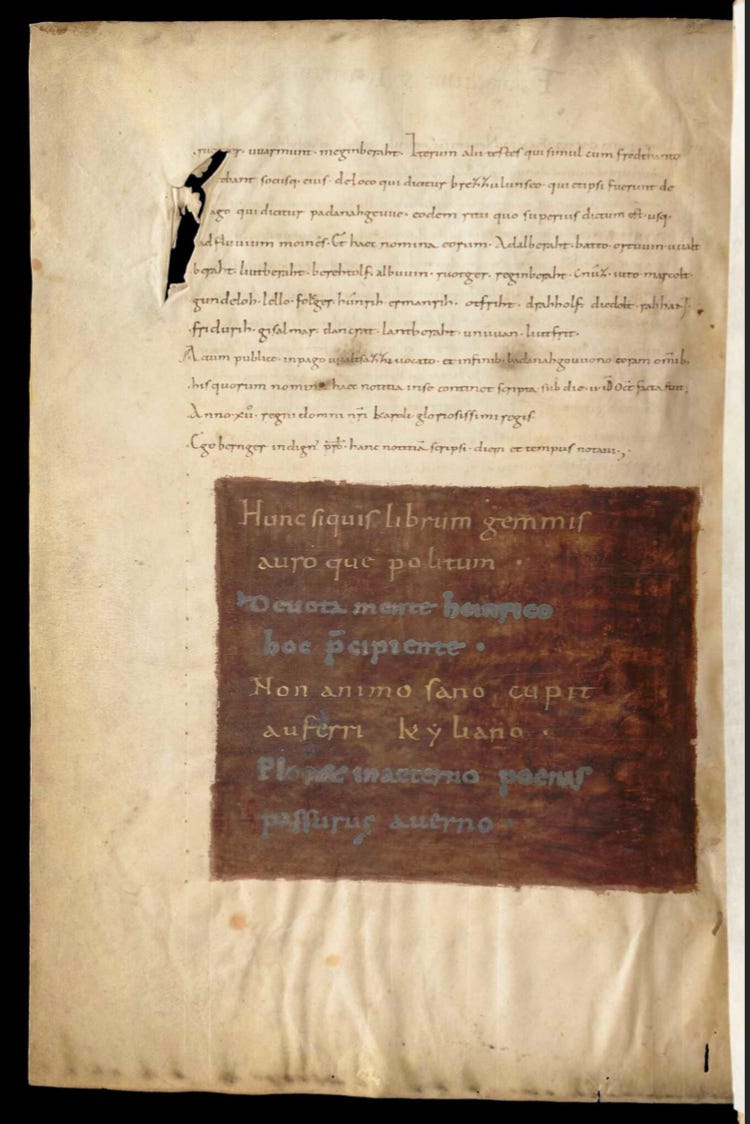 ruotger · uuarmunt · meginberaht · Iterum alii testes qui simul cum fredthanto
socusq· eius · de loco qui dicitur brezzulunseo · qui et ipsi fuerunt de
ago qui dicitur padanahgeuue · eodem ritu quo superius dictum est · usq·
ad fluuium moines · Et haec nomina eorum · Adalberaht · batto · ortuuin · uualt
beraht · liutberaht · berehtolf · albuuin · ruotger · reginberaht · uuto · marcolt ·
gundeloh · lello · folger · hunrih · ermanrih · otfriht · drahholf ·
fridurih · gisalmar · dancrat · lantberaht · unuuan · liutfrit ·
Actum publice · in pago uualtsazzi uocato · et in finib· badanahgouuono coram omib·
his quorum nomina haec notitia in se continet scripta · sub die · Oct facta fuit ;
Anno · xii° · regni domni nri karoli gloriosissimi regis
Ego bernger indign' prbt · hanc notitiā scripsi · diem et tempus notaui ·,
Hunc siquis librum gemmis
auro que politum ·
Deuota mente heinrico
hoc p̄cipiente ·
Non animo sano cupit
auferri kẏliano ·
in aeterno poenis
passurus auerno